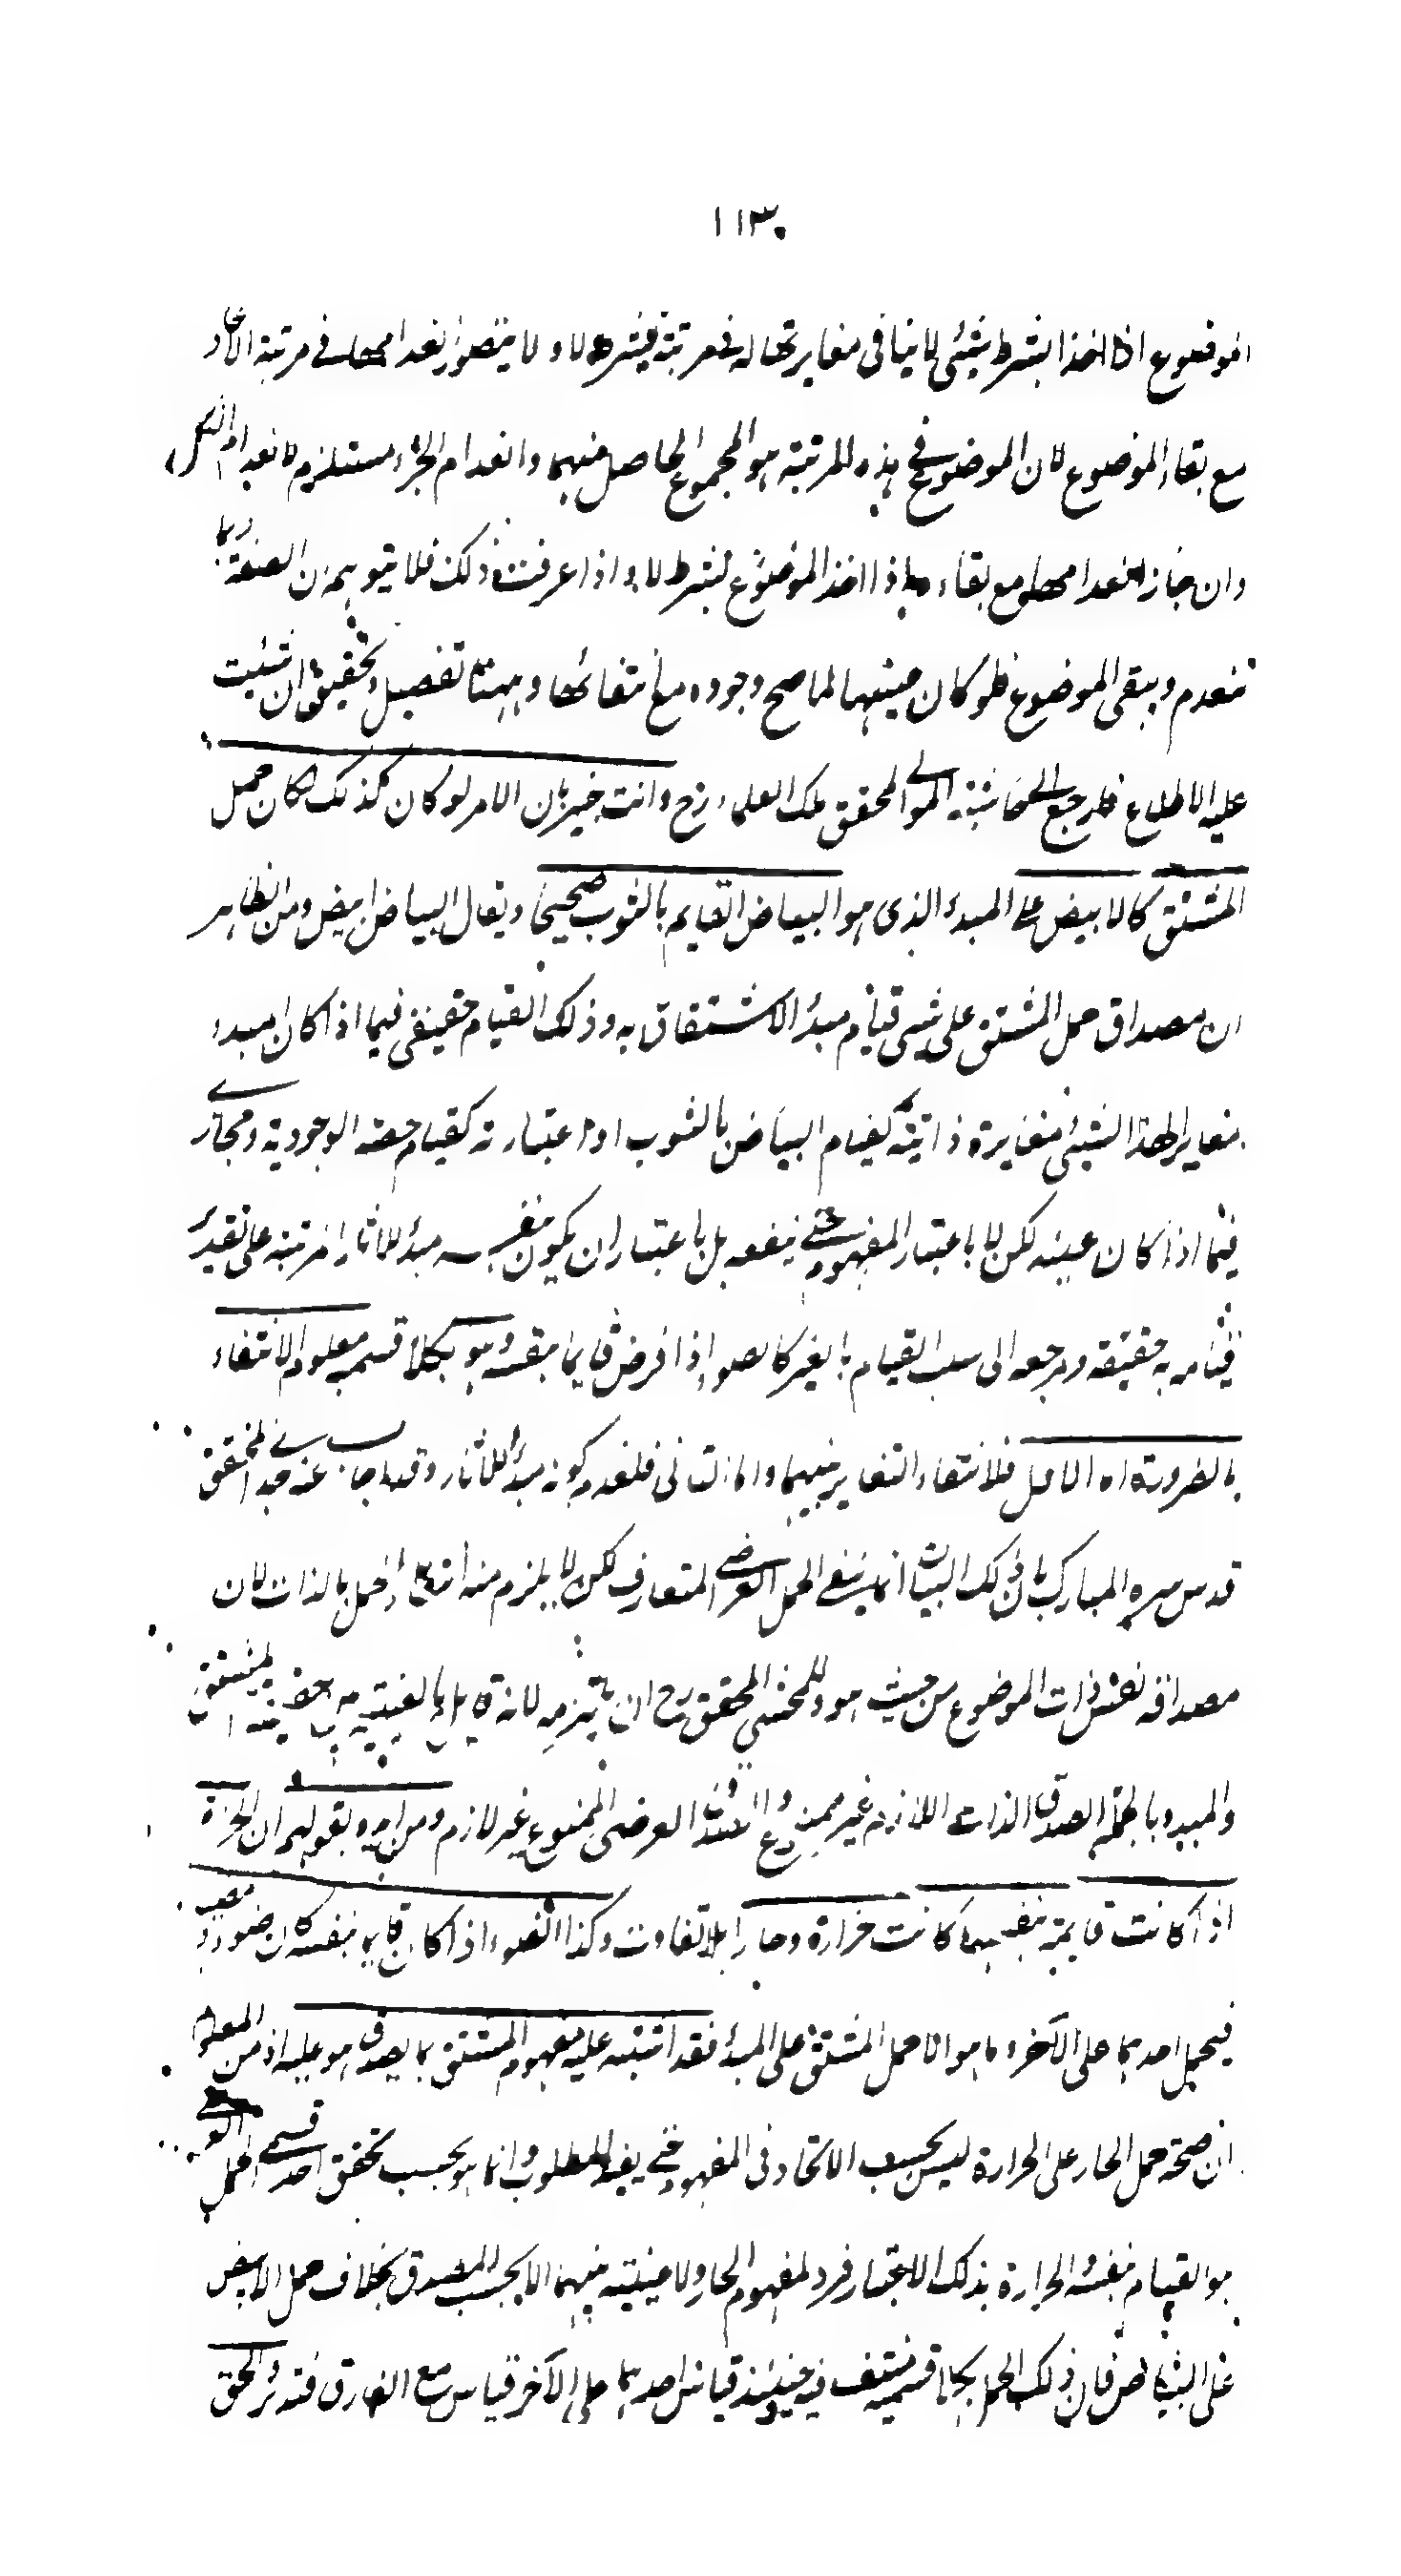 ١١٣
الموضوع اذا اخذ بشرط شئ لا ينافى مغايرتها له فى مرتبة بشرط لا ولا يتصور انعدامها فى مرتبة الاتحاد
مع بقاء الموضوع لان الموضوع فى هذه المرتبة هو المجموع الحاصل منهما وانعدام الجزء مستلزم لانعدام الكل
وان جاز انعدامها مع بقاءه اذا اخذ الموضوع بشرط لا واذا عرفت ذلك فلا يتوهم ان الصفة ربما
تنعدم ويبقى الموضوع فلو كان عينها لما صح وجوده مع انتفائها وههنا تفصيل وتحقيق ان شئت
عليه الاطلاع فارجع الى حاشية المولى المحقق ملك العلماء رح وانت خبير بان الامر لو كان كذلك لكان حمل
المشتق كالابيض على المبدء الذى هو البياض القايم بالثوب صحيحا ويقال البياض ابيض ومن الظاهر
ان مصداق حمل المشتق على شئ قيام مبدء الاشتقاق به وذلك القيام حقيقى فيما اذا كان المبدء
مغايرا لهذا الشئ مغايرة ذاتية كقيام البياض بالثوب او اعتبارية كقيام حصته الوجودية ومجازى
فيما اذا كان عينه لكن لا باعتبار المفهوم حتى ينفعه بل باعتبار ان يكون بنفسه مبدء للاثار المرتبة على تقدير
قيامه به حقيقة ومرجعه الى سلب القيام بالغير كالضوء اذا فرض قايما بنفسه وهو بكلا قسميه معلوم الانتفاء
بالضرورة اما الاول فلانتفاء التغاير بينهما واما الثانى فلعدم كونه مبدء للاثار وقد اجاب عنه جدى المحقق
قدس سره المبارك بان ذلك البيان انما ينفى الحمل العرضى المتعارف لكن لا يلزم منه انتفاء الحمل بالذات لان
مصداقه نفس ذات الموضوع من حيث هو وللمحشى المحقق رح ان يلتزمه لانه قايل بالعينية بين حقيقة المشتق
والمبدء وبالجملة الصدق الذاتى اللازم غير ممنوع والصدق العرضى الممنوع غير لازم ومن ايده بقولهم ان الحرارة
اذا كانت قايمة بنفسها كانت حرارة وحارا بلا تفاوت وكذا الضوء اذا كان قايما بنفسه كان ضوء ومضيئا
فيحمل احدهما على الآخر وما هو الا حمل المشتق على المبدء فقد اشتبه عليه مفهوم المشتق بما يصدق هو عليه اذ من المعلوم
ان صحة حمل الحار على الحرارة ليس بحسب الاتحاد فى المفهوم حتى يفيد المطلوب وانما هو بحسب تحقق احد قسمى الحمل
هو القيام بنفسه الحرارة بذلك الاعتبار فرد لمفهوم الحار ولا عينية بينهما الا بحسب المصدق بخلاف حمل الابيض
على البياض فان ذلك الحمل بكلا قسميه منتف فيه فحينئذ قياس احدهما على الآخر قياس مع الفارق فتدبر والحق